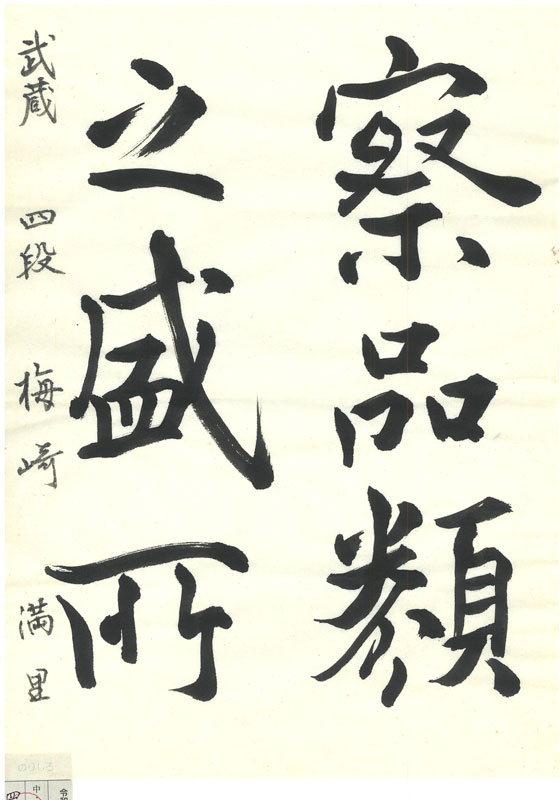 察品類
之盛所
武蔵 四段 梅崎 満里
中